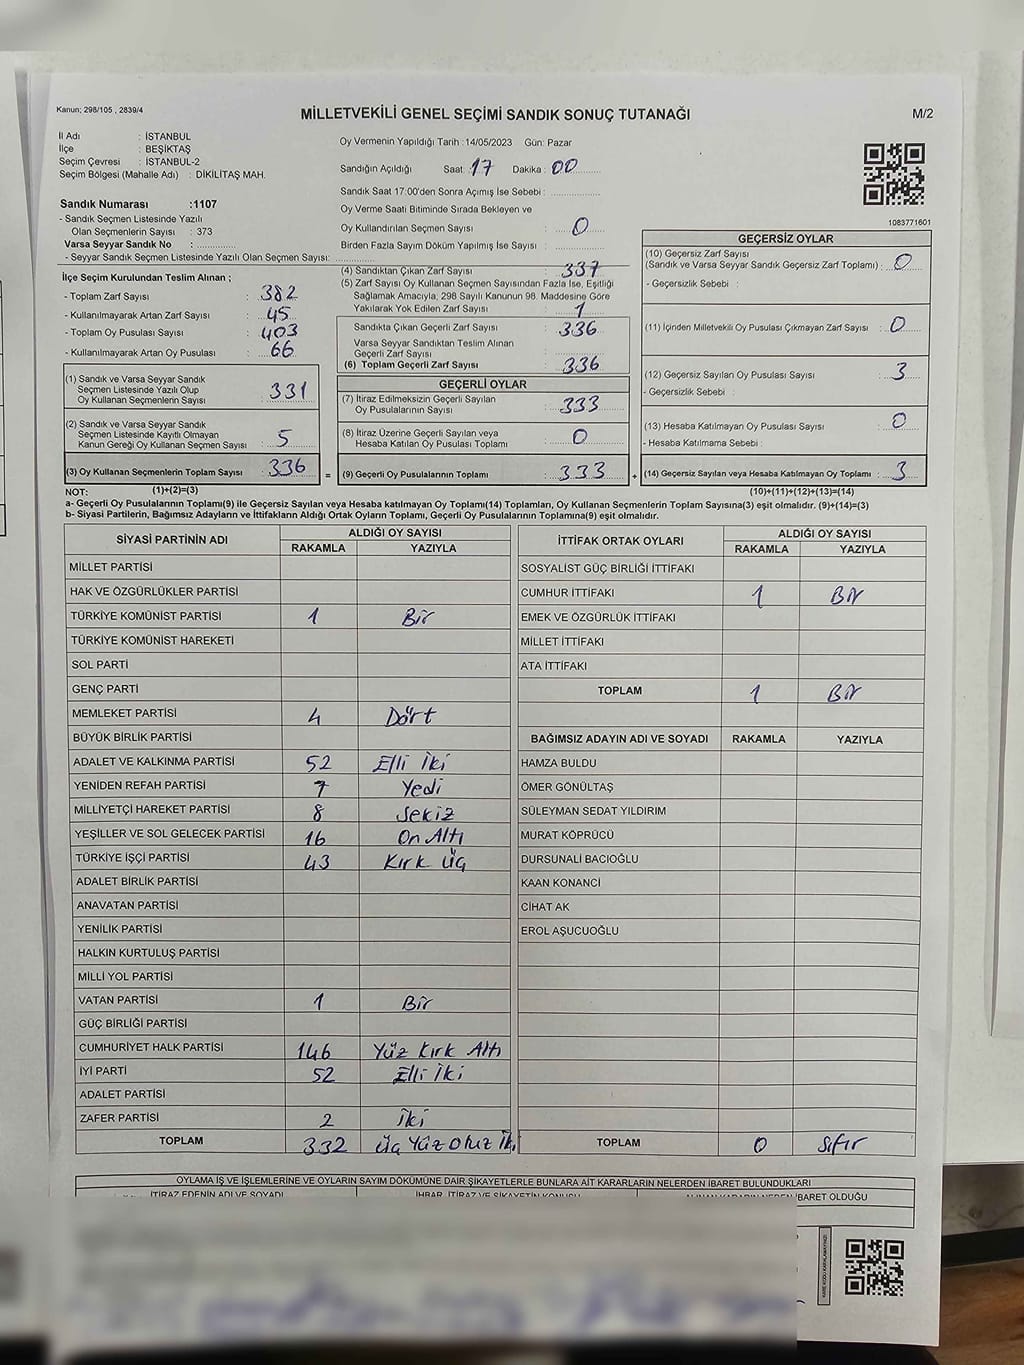 Kanun; 298/105 , 2839/4
MİLLETVEKİLİ GENEL SEÇİMİ SANDIK SONUÇ TUTANAĞI
M/2
İl Adı : İSTANBUL
İlçe : BEŞİKTAŞ
Seçim Çevresi : İSTANBUL-2
Seçim Bölgesi (Mahalle Adı) : DİKİLİTAŞ MAH.
Sandık Numarası :1107
- Sandık Seçmen Listesinde Yazılı
Olan Seçmenlerin Sayısı : 373
Varsa Seyyar Sandık No :
- Seyyar Sandık Seçmen Listesinde Yazılı Olan Seçmen Sayısı:
Oy Vermenin Yapıldığı Tarih :14/05/2023 Gün: Pazar
Sandığın Açıldığı Saat: 17 Dakika : 00
Sandık Saat 17:00'den Sonra Açımış İse Sebebi :
Oy Verme Saati Bitiminde Sırada Bekleyen ve
Oy Kullandırılan Seçmen Sayısı : 0
Birden Fazla Sayım Döküm Yapılmış İse Sayısı :
1083771601
İlçe Seçim Kurulundan Teslim Alınan ;
- Toplam Zarf Sayısı : 382
- Kullanılmayarak Artan Zarf Sayısı : 45
- Toplam Oy Pusulası Sayısı : 403
- Kullanılmayarak Artan Oy Pusulası : 66
(1) Sandık ve Varsa Seyyar Sandık
Seçmen Listesinde Yazılı Olup
Oy Kullanan Seçmenlerin Sayısı : 331
(2) Sandık ve Varsa Seyyar Sandık
Seçmen Listesinde Kayıtlı Olmayan
Kanun Gereği Oy Kullanan Seçmen Sayısı : 5
(3) Oy Kullanan Seçmenlerin Toplam Sayısı : 336 =
(4) Sandıktan Çıkan Zarf Sayısı : 337
(5) Zarf Sayısı Oy Kullanan Seçmen Sayısından Fazla İse, Eşitliği
Sağlamak Amacıyla, 298 Sayılı Kanunun 98. Maddesine Göre
Yakılarak Yok Edilen Zarf Sayısı : 1
Sandıkta Çıkan Geçerli Zarf Sayısı : 336
Varsa Seyyar Sandıktan Teslim Alınan
Geçerli Zarf Sayısı :
(6) Toplam Geçerli Zarf Sayısı : 336
GEÇERLİ OYLAR
(7) İtiraz Edilmeksizin Geçerli Sayılan
Oy Pusulalarının Sayısı : 333
(8) İtiraz Üzerine Geçerli Sayılan veya
Hesaba Katılan Oy Pusulası Toplamı : 0
(9) Geçerli Oy Pusulalarının Toplamı : 333 +
GEÇERSİZ OYLAR
(10) Geçersiz Zarf Sayısı
(Sandık ve Varsa Seyyar Sandık Geçersiz Zarf Toplamı) : 0
- Geçersizlik Sebebi :
(11) İçinden Milletvekili Oy Pusulası Çıkmayan Zarf Sayısı : 0
(12) Geçersiz Sayılan Oy Pusulası Sayısı : 3
- Geçersizlik Sebebi :
(13) Hesaba Katılmayan Oy Pusulası Sayısı : 0
- Hesaba Katılmama Sebebi :
(14) Geçersiz Sayılan veya Hesaba Katılmayan Oy Toplamı : 3
NOT: (1)+(2)=(3) (10)+(11)+(12)+(13)=(14)
a- Geçerli Oy Pusulalarının Toplamı(9) ile Geçersiz Sayılan veya Hesaba katılmayan Oy Toplamı(14) Toplamları, Oy Kullanan Seçmenlerin Toplam Sayısına(3) eşit olmalıdır. (9)+(14)=(3)
b- Siyasi Partilerin, Bağımsız Adayların ve İttifakların Aldığı Ortak Oyların Toplamı, Geçerli Oy Pusulalarının Toplamına(9) eşit olmalıdır.
SİYASİ PARTİNİN ADI ALDIĞI OY SAYISI
RAKAMLA YAZIYLA
MİLLET PARTİSİ
HAK VE ÖZGÜRLÜKLER PARTİSİ
TÜRKİYE KOMÜNİST PARTİSİ 1 Bir
TÜRKİYE KOMÜNİST HAREKETİ
SOL PARTİ
GENÇ PARTİ
MEMLEKET PARTİSİ 4 Dört
BÜYÜK BİRLİK PARTİSİ
ADALET VE KALKINMA PARTİSİ 52 Elli İki
YENİDEN REFAH PARTİSİ 7 Yedi
MİLLİYETÇİ HAREKET PARTİSİ 8 Sekiz
YEŞİLLER VE SOL GELECEK PARTİSİ 16 On Altı
TÜRKİYE İŞÇİ PARTİSİ 43 Kırk Üç
ADALET BİRLİK PARTİSİ
ANAVATAN PARTİSİ
YENİLİK PARTİSİ
HALKIN KURTULUŞ PARTİSİ
MİLLİ YOL PARTİSİ
VATAN PARTİSİ 1 Bir
GÜÇ BİRLİĞİ PARTİSİ
CUMHURİYET HALK PARTİSİ 146 Yüz Kırk Altı
İYİ PARTİ 52 Elli İki
ADALET PARTİSİ
ZAFER PARTİSİ 2 İki
TOPLAM 332 Üç Yüz Otuz İki
İTTİFAK ORTAK OYLARI ALDIĞI OY SAYISI
RAKAMLA YAZIYLA
SOSYALİST GÜÇ BİRLİĞİ İTTİFAKI
CUMHUR İTTİFAKI 1 Bir
EMEK VE ÖZGÜRLÜK İTTİFAKI
MİLLET İTTİFAKI
ATA İTTİFAKI
TOPLAM 1 Bir
BAĞIMSIZ ADAYIN ADI VE SOYADI RAKAMLA YAZIYLA
HAMZA BULDU
ÖMER GÖNÜLTAŞ
SÜLEYMAN SEDAT YILDIRIM
MURAT KÖPRÜCÜ
DURSUNALİ BACIOĞLU
KAAN KONANCİ
CİHAT AK
EROL AŞUCUOĞLU
TOPLAM 0 Sıfır
OYLAMA İŞ VE İŞLEMLERİNE VE OYLARIN SAYIM DÖKÜMÜNE DAİR ŞİKAYETLERLE BUNLARA AİT KARARLARIN NELERDEN İBARET BULUNDUKLARI
İTİRAZ EDENİN ADI VE SOYADI İHBAR, İTİRAZ VE ŞİKAYETİN KONUSU ALINAN KARARIN NEDEN İBARET OLDUĞU